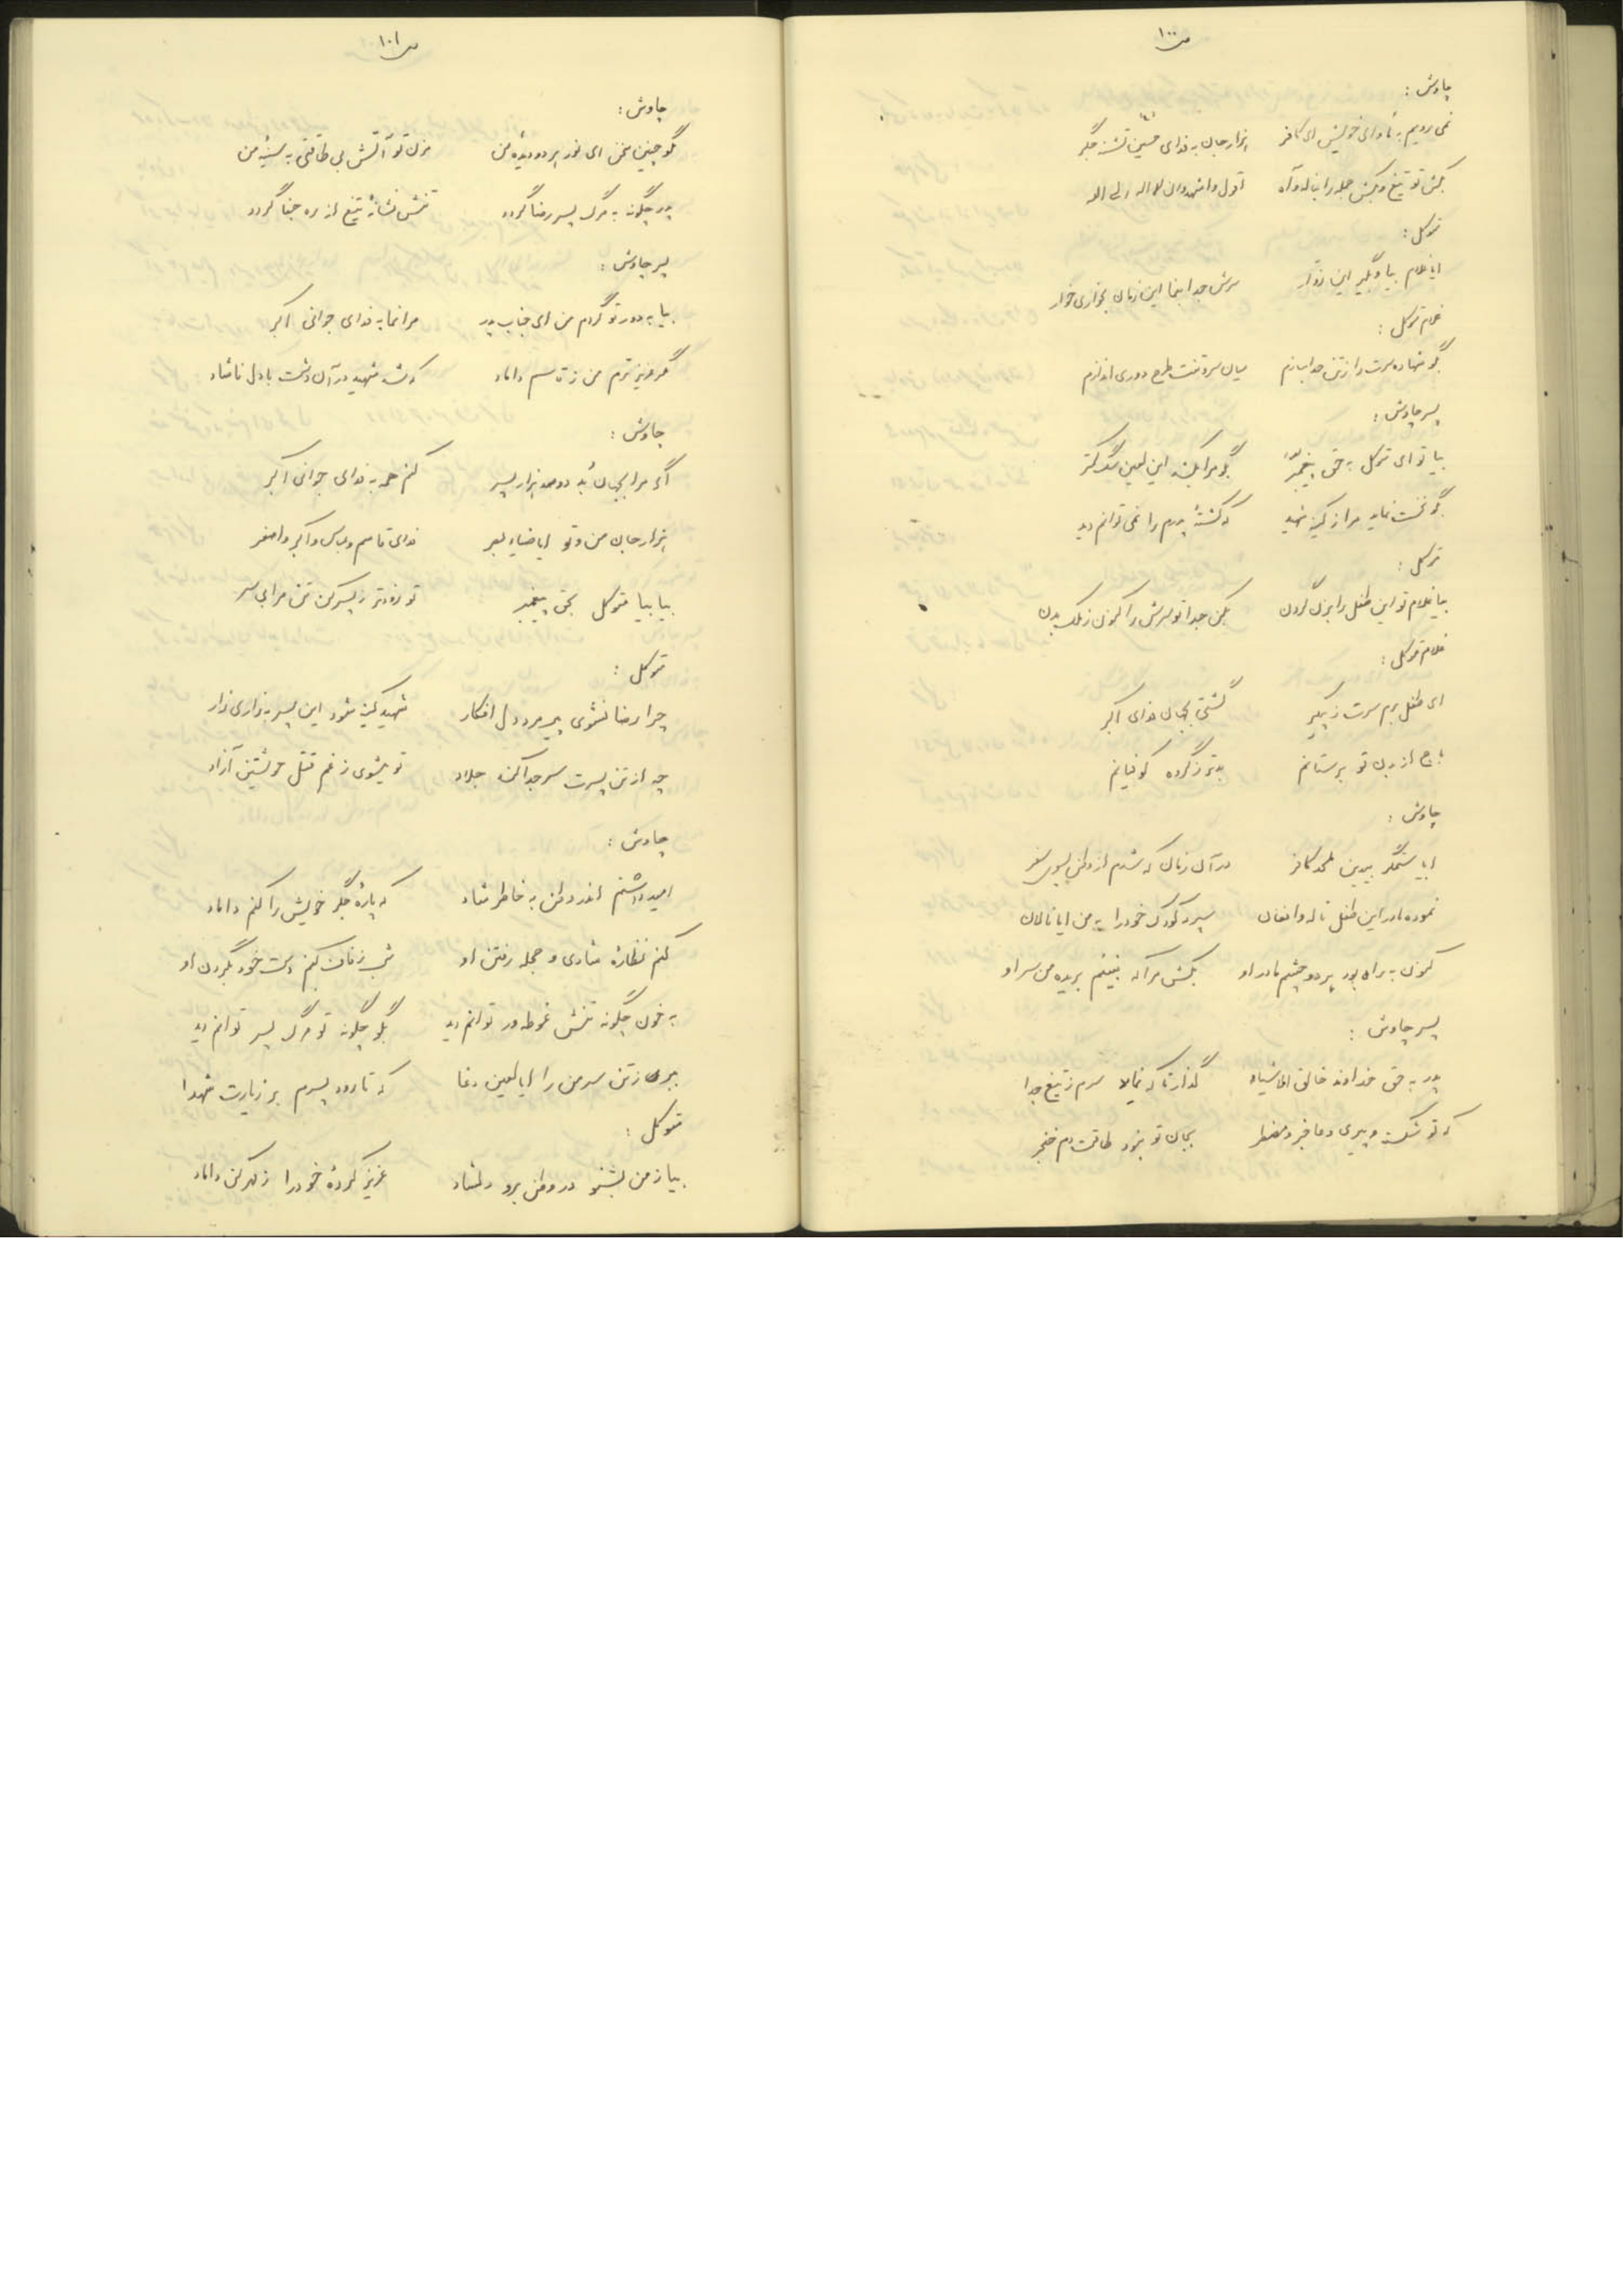 ص ۱۰۰
چاوش :
نمی رویم به مأوای خویش ای کافر هزار جان به فدای حسین تشنه جگر
بکش تو تیغ و بکش جمله را بناله و آه اقول و اشهد ان لا اله الی الله
متوکل :
ایا غلام بیا و بگیر این زوار سرش جدا بنما این زمان بخواری خوار
غلام متوکل :
بگو شهاده سرت را ز تن جدا سازم میان سر و تنت طرح دوری اندازم
پسر چاوش :
بیا تو ای متوکل به حق پیغمبر بگو مرا بکشد این لعین
بگو نخست نماید مرا ز کینه شهید که کشته پدرم را نمی توانم دید
متوکل :
بیا غلام تو این طفل را بزن گردن بکن جدا تو سرش را کنون ز ملک بدن
غلام متوکل :
ای طفل برم سرت ز پیکر گشتی بجهان فدای اکبر
باج از بدن تو بر ستانم بدتر ز گروه کوفیانم
چاوش :
ایا ستمگر بیدین ملحد کافر در آن زمان که شدم از وطن بسوی سفر
نموده مادر این طفل ناله و افغان سپرد کودک خود را به من ایا نالان
کنون به راه بود پر دو چشم مادر او بکش مرا که نبینم بریده من سر او
پسر چاوش :
پدر به حق خداوند خالق الاشیاء گذار تا که نمایند سرم ز تیغ جدا
که تو شکسته و پیری و عاجز و مضطر بجان تو نبود طاقت دم خنجر
ص ۱۰۱
چاوش :
مگو چنین سخن ای نور هر دو دیده من مزن تو آتش بی طاقتی به سینه من
پدر چگونه به مرگ پسر رضا گردد تنش نشانه تیغ از ره جفا گردد
پسر چاوش :
بیا به دور تو گردم من ای جناب پدر مرا نما به فدای جوانی اکبر
مگر عزیزترم من ز قاسم داماد که شد شهید در آن دشت با دل ناشاد
چاوش :
اگر مرا بجهان بُد دو صد هزار پسر کنم همه به فدای جوانی اکبر
هزار جان من و تو ایا ضیاء بصر فدای قاسم و عباس و اکبر و اصغر
بیا بیا متوکل بحق پیغمبر تو زودتر ز پسر کن تن مرا بی سر
متوکل :
چرا رضا نشوی پیر مرد دل افکار شهید کینه شود این پسر به زاری زار
چه از تن پسرت سر جدا کند جلاد تو میشوی ز غم قتل خویشتن آزاد
چاوش :
امید داشتم اندر وطن به خاطر شاد که پاره جگر خویش را کنم داماد
کنم نظاره شادی و حجله رفتن او شب زفاف کنم دست خود بگردن او
به خون چگونه تنش غوطه ور توانم دید بگو چگونه تو مرگ پسر توانم دید
ببر ز تن سر من را ایا لعین دغا که تا رود پسرم بر زیارت شهدا
متوکل :
بیا ز من بشنو در وطن برو دلشاد عزیز کرده خود را ز مهر کن داماد